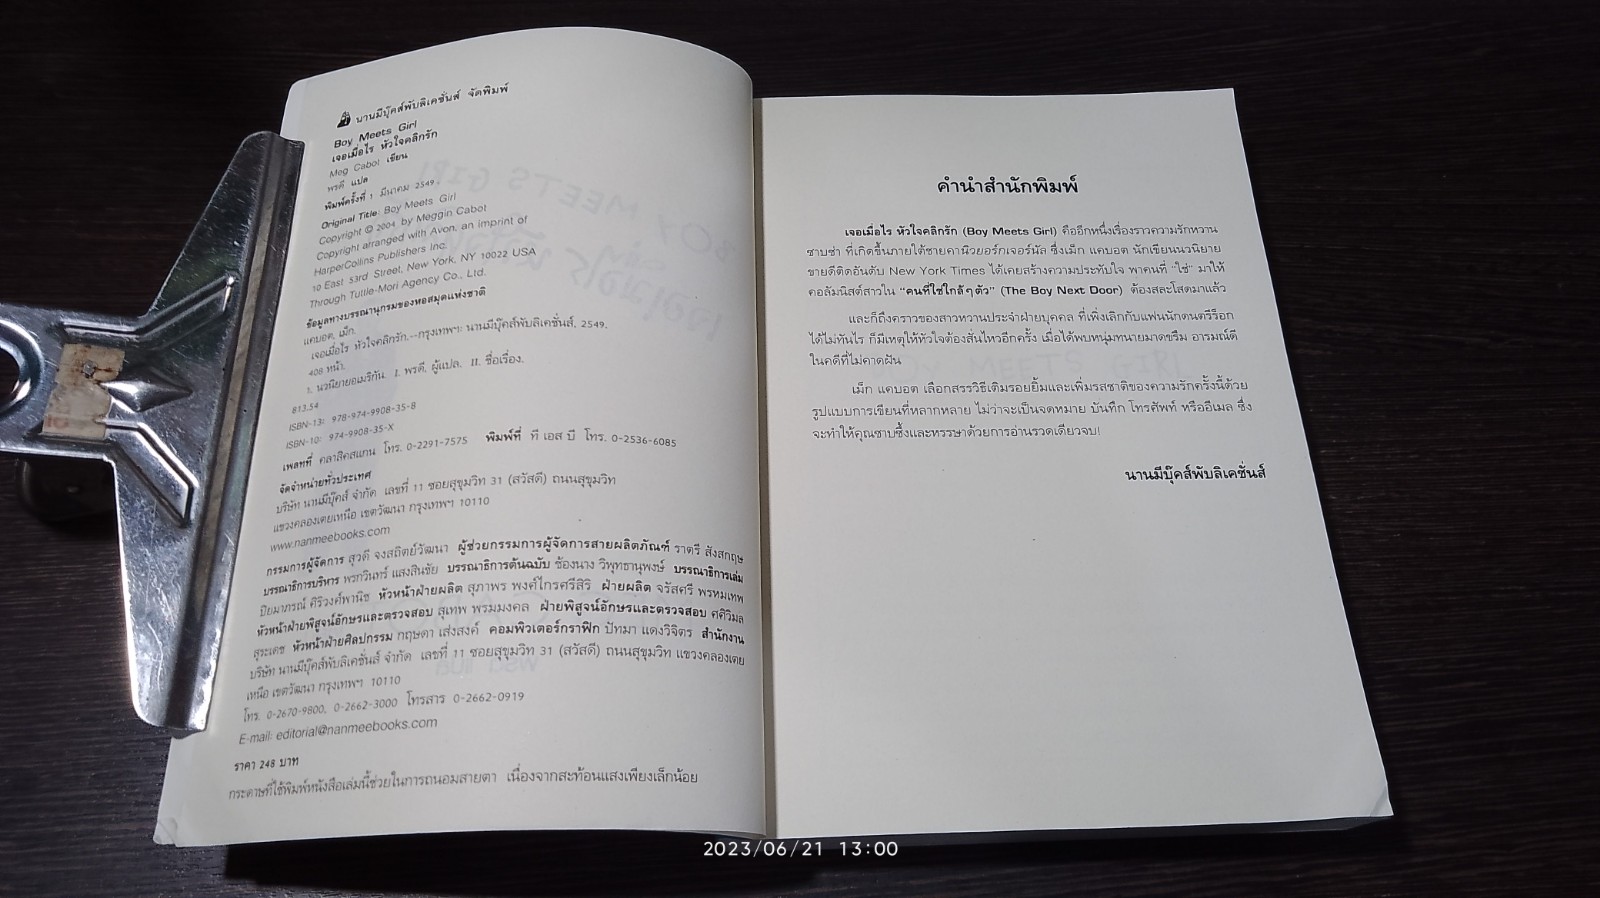 นานมีบุ๊คส์พับลิเคชั่นส์ จัดพิมพ์
Boy Meets Girl
เจอเมื่อไร หัวใจคลิกรัก
Meg Cabot เขียน
พรดี แปล
พิมพ์ครั้งที่ 1 มีนาคม 2549.
Original Title: Boy Meets Girl
Copyright © 2004 by Meggin Cabot
Copyright arranged with Avon, an imprint of
HarperCollins Publishers Inc.
10 East 53rd Street, New York, NY 10022 USA
Through Tuttle-Mori Agency Co., Ltd.
ข้อมูลทางบรรณานุกรมของหอสมุดแห่งชาติ
แคบอต, เม็ก.
เจอเมื่อไร หัวใจคลิกรัก.--กรุงเทพฯ: นานมีบุ๊คส์พับลิเคชั่นส์, 2549.
408 หน้า.
1. นวนิยายอเมริกัน. I. พรดี, ผู้แปล. II. ชื่อเรื่อง.
813.54
ISBN-13: 978-974-9908-35-8
ISBN-10: 974-9908-35-X
เพลทที่ คลาสิคสแกน โทร. 0-2291-7575 พิมพ์ที่ ที เอส บี โทร. 0-2536-6085
จัดจำหน่ายทั่วประเทศ
บริษัท นานมีบุ๊คส์ จำกัด เลขที่ 11 ซอยสุขุมวิท 31 (สวัสดี) ถนนสุขุมวิท
แขวงคลองเตยเหนือ เขตวัฒนา กรุงเทพฯ 10110
www.nanmeebooks.com
กรรมการผู้จัดการ สุวดี จงสถิตย์วัฒนา ผู้ช่วยกรรมการผู้จัดการสายผลิตภัณฑ์ ราตรี สังสกฤษ
บรรณาธิการบริหาร พรกวินทร์ แสงสินชัย บรรณาธิการต้นฉบับ ช้องนาง วิพุทธานุพงษ์ บรรณาธิการเล่ม
ปิยมาภรณ์ ศิริวงศ์พานิช หัวหน้าฝ่ายผลิต สุภาพร พงศ์ไกรศรีสิริ ฝ่ายผลิต จรัสศรี พรหมเทพ
หัวหน้าฝ่ายพิสูจน์อักษรและตรวจสอบ สุเทพ พรมมงคล ฝ่ายพิสูจน์อักษรและตรวจสอบ ศศิวิมล
สุระเดช หัวหน้าฝ่ายศิลปกรรม กฤษดา เส่งสงค์ คอมพิวเตอร์กราฟิก ปัทมา แดงวิจิตร สำนักงาน
บริษัท นานมีบุ๊คส์พับลิเคชั่นส์ จำกัด เลขที่ 11 ซอยสุขุมวิท 31 (สวัสดี) ถนนสุขุมวิท แขวงคลองเตย
เหนือ เขตวัฒนา กรุงเทพฯ 10110
โทร. 0-2670-9800, 0-2662-3000 โทรสาร 0-2662-0919
E-mail: editorial@nanmeebooks.com
ราคา 248 บาท
กระดาษที่ใช้พิมพ์หนังสือเล่มนี้ช่วยในการถนอมสายตา เนื่องจากสะท้อนแสงเพียงเล็กน้อย
คำนำสำนักพิมพ์
เจอเมื่อไร หัวใจคลิกรัก (Boy Meets Girl) คืออีกหนึ่งเรื่องราวความรักหวาน
ซาบซ่า ที่เกิดขึ้นภายใต้ชายคานิวยอร์กเจอร์นัล ซึ่งเม็ก แคบอต นักเขียนนวนิยาย
ขายดีติดอันดับ New York Times ได้เคยสร้างความประทับใจ พาคนที่ “ใช่” มาให้
คอลัมนิสต์สาวใน “คนที่ใช่ใกล้ๆ ตัว” (The Boy Next Door) ต้องสละโสดมาแล้ว
และก็ถึงคราวของสาวหวานประจำฝ่ายบุคคล ที่เพิ่งเลิกกับแฟนนักดนตรีร็อก
ได้ไม่ทันไร ก็มีเหตุให้หัวใจต้องสั่นไหวอีกครั้ง เมื่อได้พบหนุ่มทนายมาดขรึม อารมณ์ดี
ในคดีที่ไม่คาดฝัน
เม็ก แคบอต เลือกสรรวิธีเติมรอยยิ้มและเพิ่มรสชาติของความรักครั้งนี้ด้วย
รูปแบบการเขียนที่หลากหลาย ไม่ว่าจะเป็นจดหมาย บันทึก โทรศัพท์ หรืออีเมล ซึ่ง
จะทำให้คุณซาบซึ้งและหรรษาด้วยการอ่านรวดเดียวจบ!
นานมีบุ๊คส์พับลิเคชั่นส์
2023/06/21 13:00